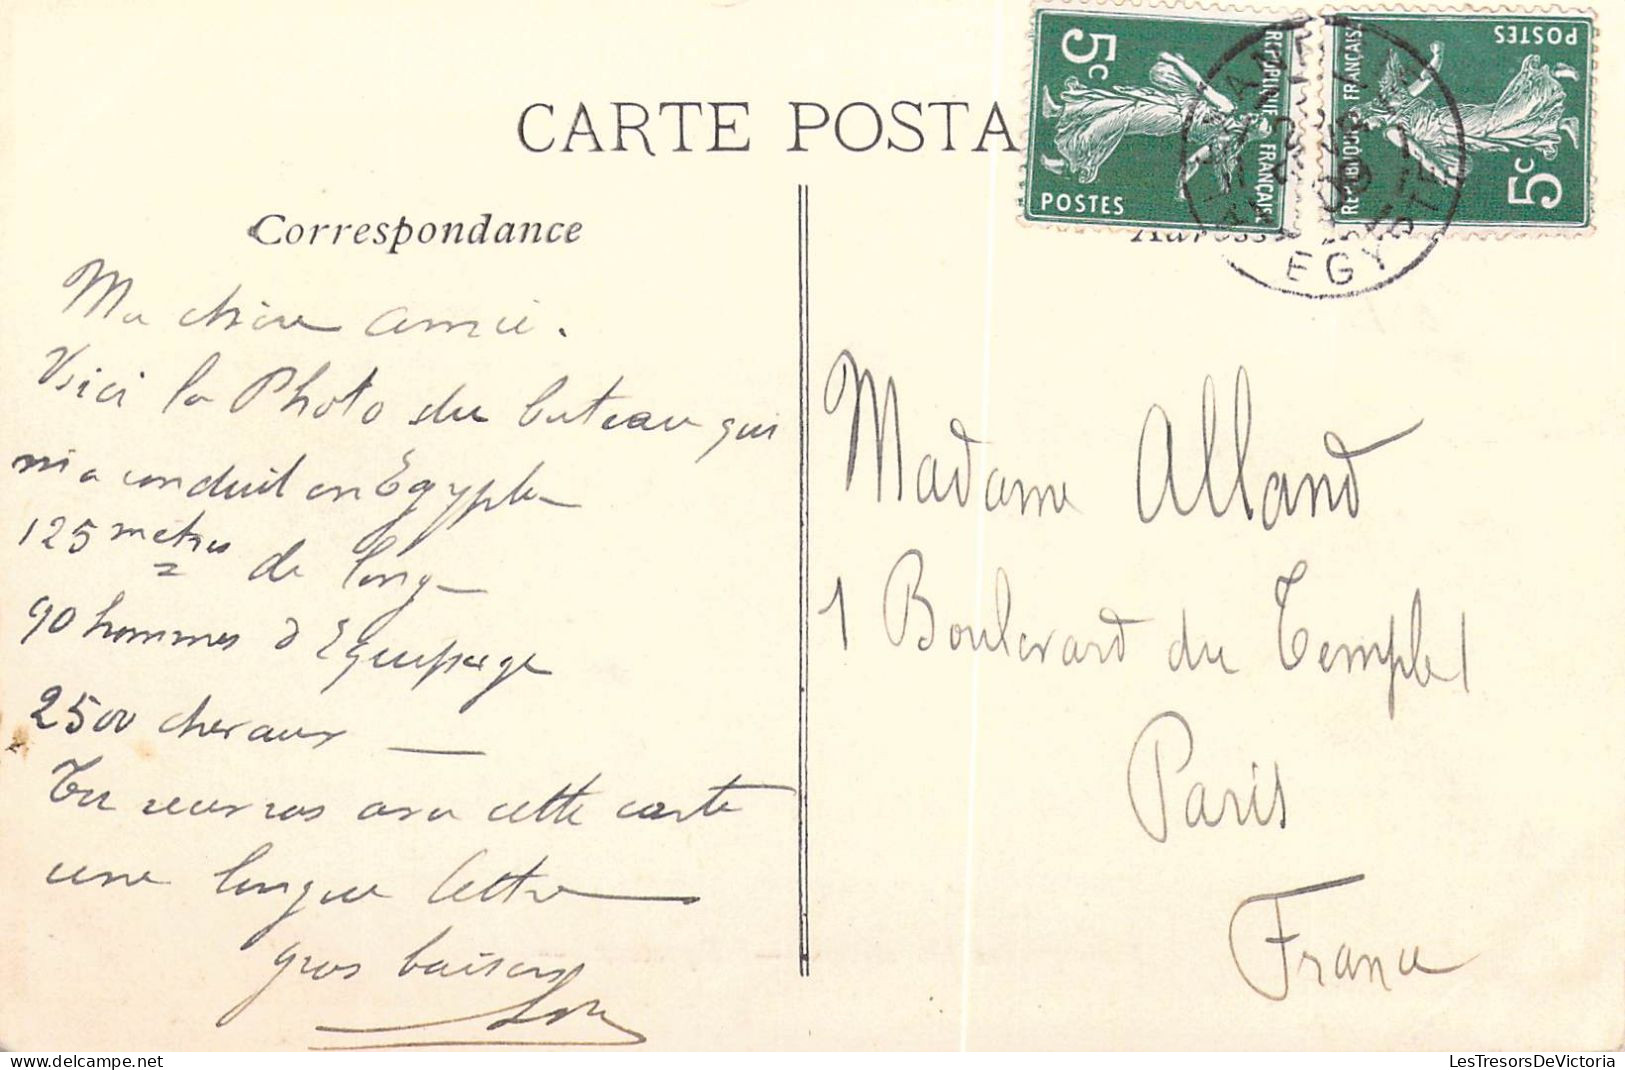 CARTE POSTA
Correspondance
Ma chère amie.
Voici la Photo du bateau qui
m'a conduit en Egypte
125 mètres de long
90 hommes d'Equipage
2500 chevaux
Tu recevras avec cette carte
une longue lettre
gros baisers
5c
REPUBLIQUE FRANÇAISE
POSTES
5c
REPUBLIQUE FRANÇAISE
POSTES
EGYPTE
09
Adresse
Madame Alland
1 Boulevard du Temple 1
Paris
France
www.delcampe.net
LesTresorsDeVictoria